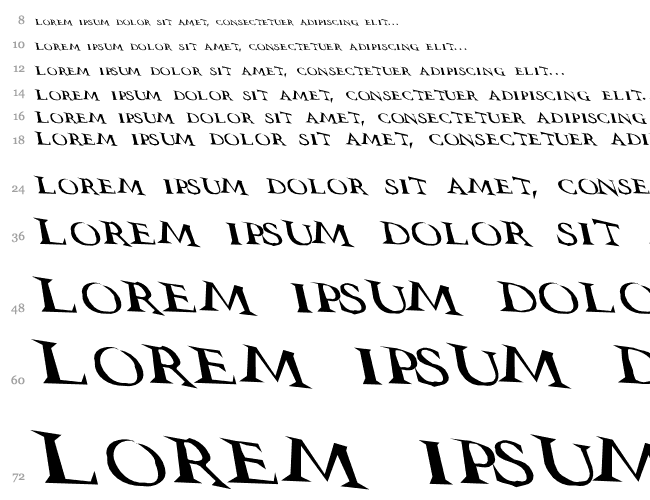 8 Lorem ipsum dolor sit amet, consectetuer adipiscing elit...
10 Lorem ipsum dolor sit amet, consectetuer adipiscing elit...
12 Lorem ipsum dolor sit amet, consectetuer adipiscing elit...
14 Lorem ipsum dolor sit amet, consectetuer adipiscing elit.
16 Lorem ipsum dolor sit amet, consectetuer adipiscing
18 Lorem ipsum dolor sit amet, consectetuer adi
24 Lorem ipsum dolor sit amet, conse
36 Lorem ipsum dolor sit
48 Lorem ipsum dolo
60 Lorem ipsum d
72 Lorem ipsum